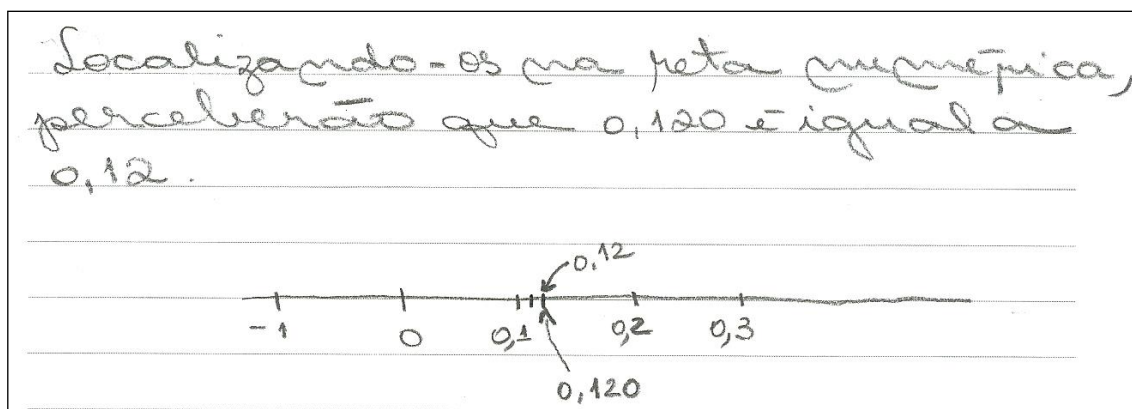 Localizando-os na reta numérica,
perceberão que 0,120 é igual a
0,12.
0,12
-1 0 0,1 0,2 0,3
0,120